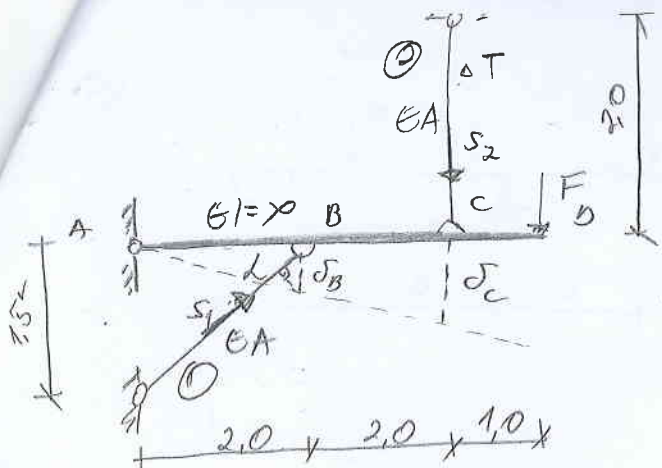 ② ΔT
EA
S₂
2,0
F
A EI=∞ B C D
1,5
α δ_B δ_C
S₁
EA
①
2,0 2,0 1,0